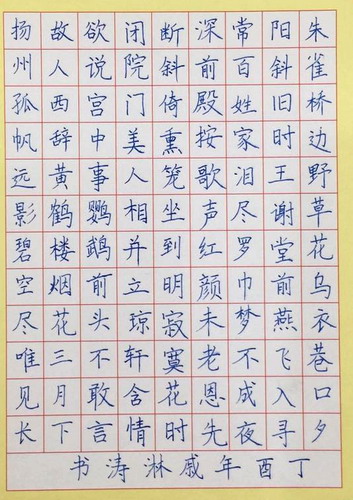 朱雀桥边野草花乌衣巷口夕
阳斜旧时王谢堂前燕飞入寻
常百姓家泪尽罗巾梦不成夜
深前殿按歌声红颜未老恩先
断斜倚熏笼坐到明寂寞花时
闭院门美人相并立琼轩含情
欲说宫中事鹦鹉前头不敢言
故人西辞黄鹤楼烟花三月下
扬州孤帆远影碧空尽唯见长
丁酉年戚淋涛书